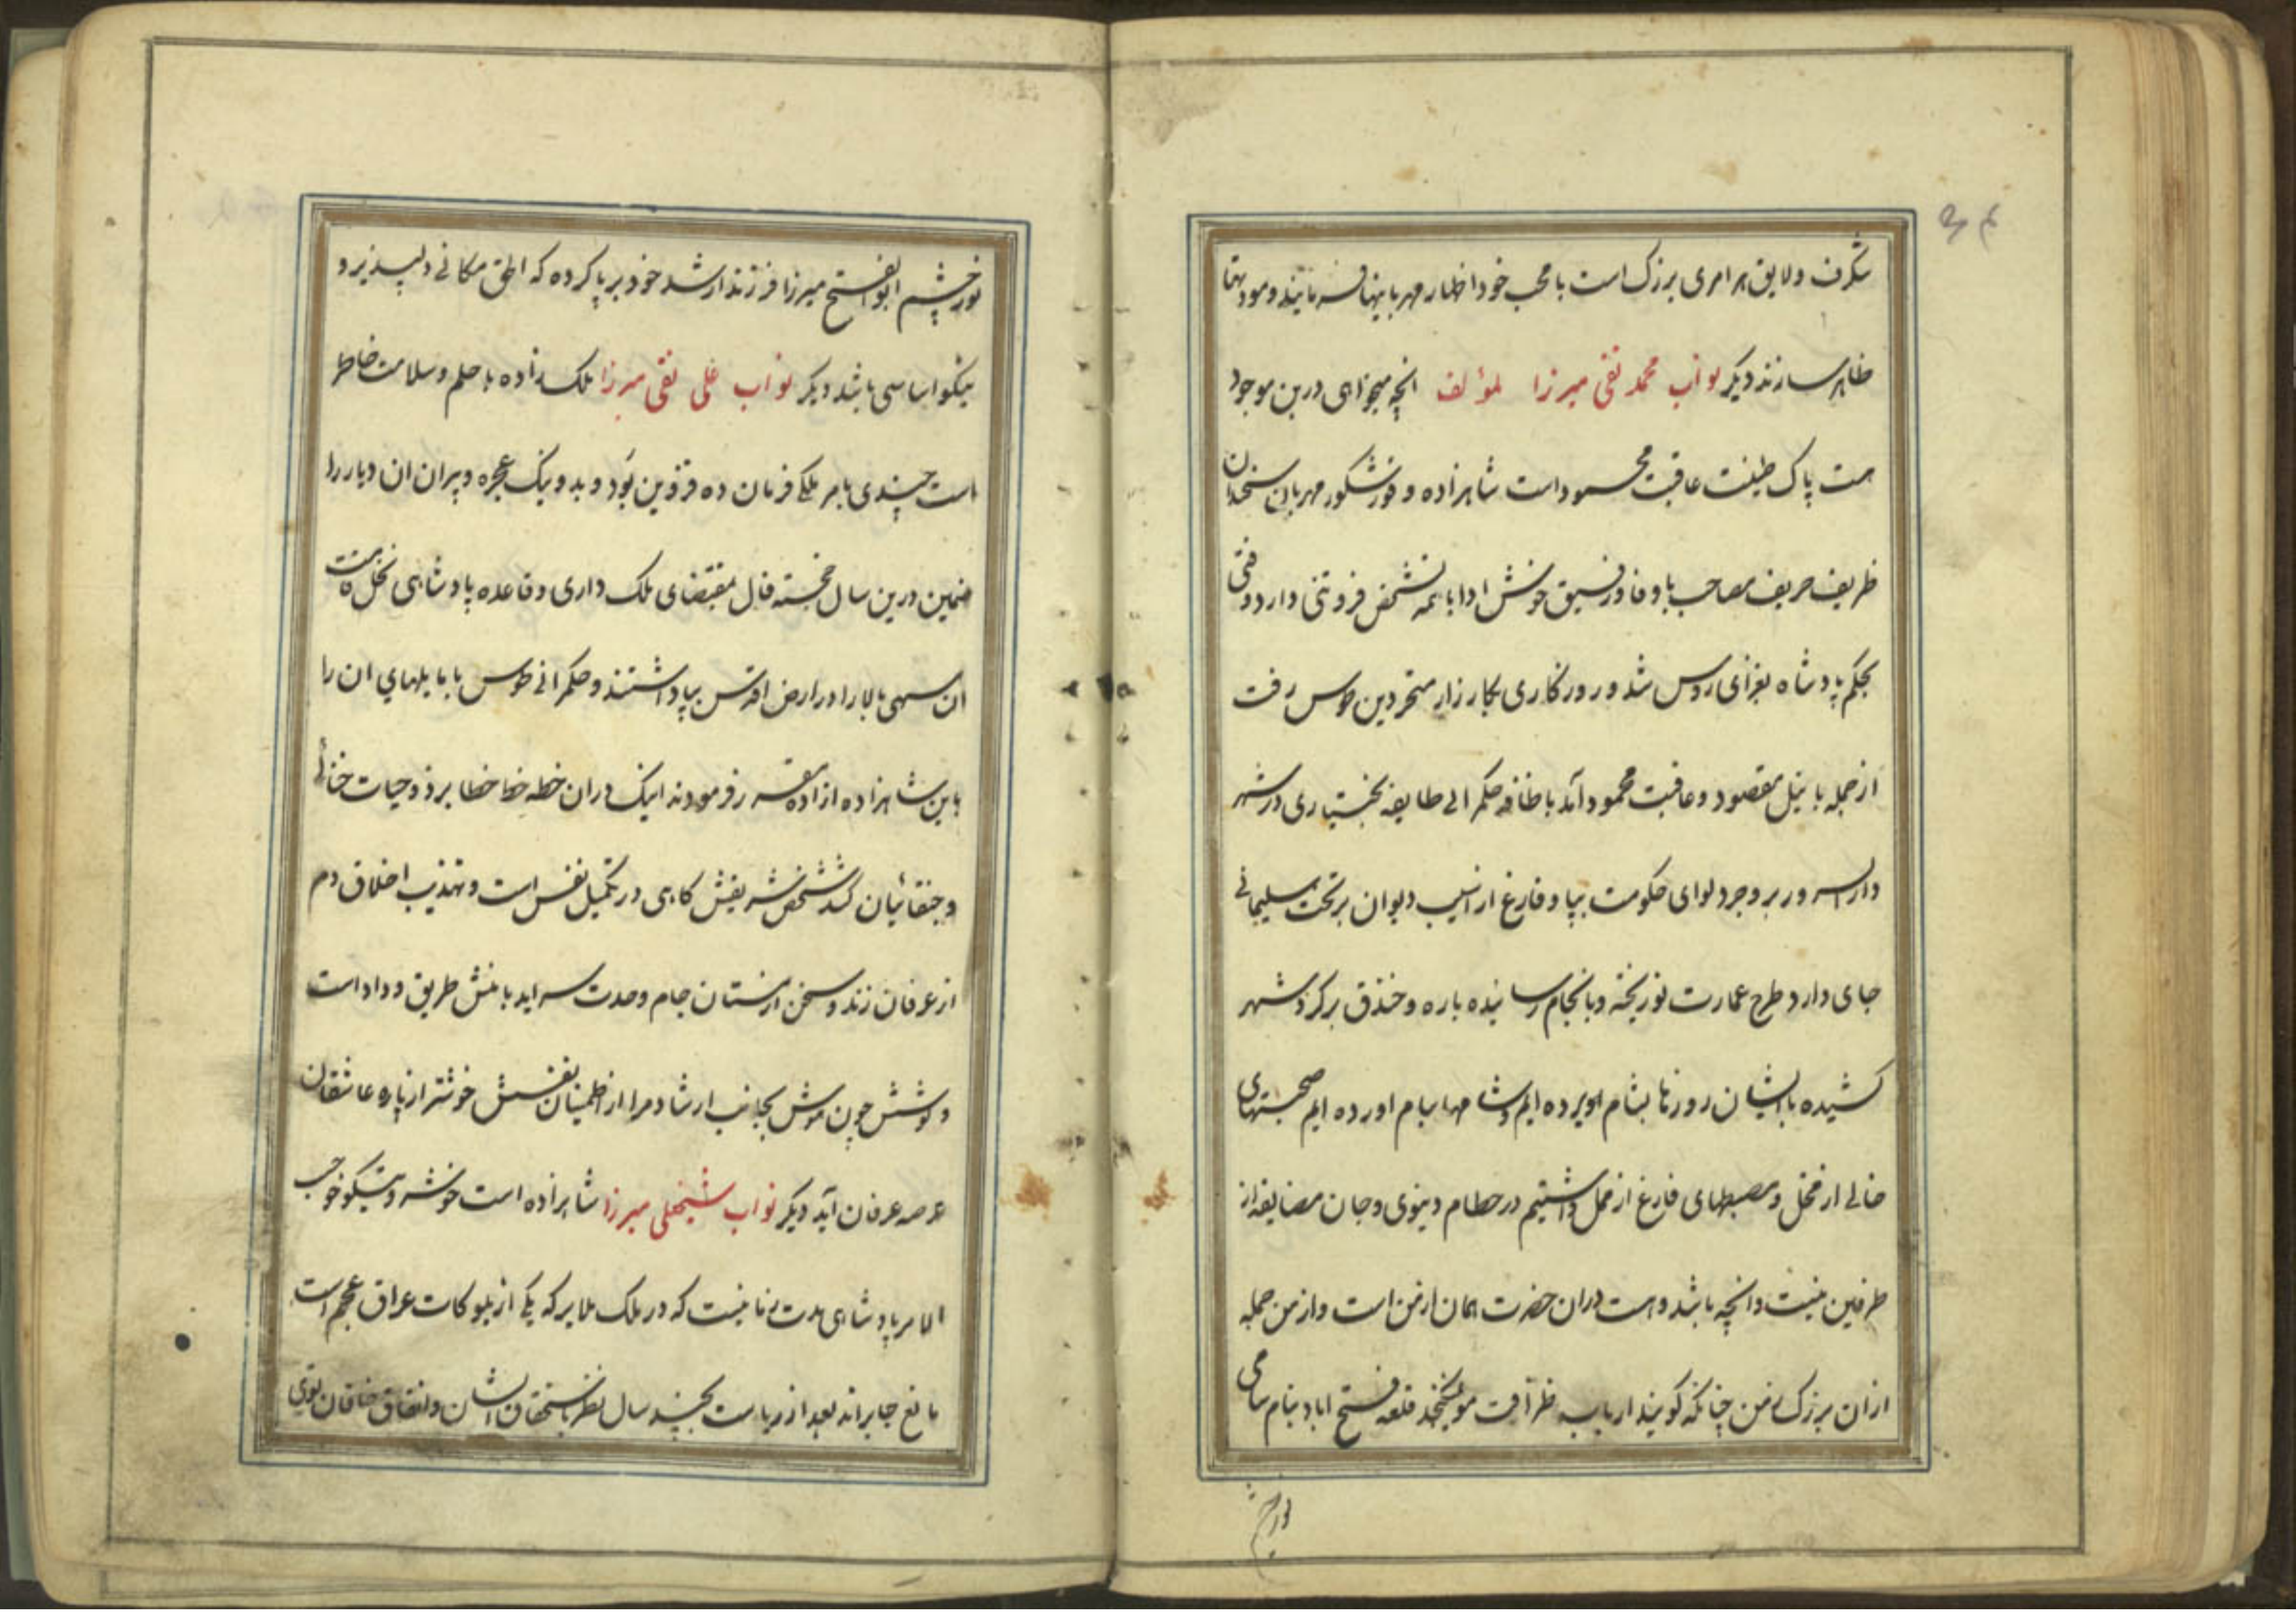 شگرف و لایق هر امری بزرک است با محب خود اظهار مهربانیها فرمایند و مودتها
ظاهر سازند دیکر نواب محمد تقی میرزا لمؤلف انچه میخواهی درین موجود
هست پاک طینت عاقبت محسمود است شاهزاده و مهربان سخندان
ظریف حریف مصاحب باوفا و رفیق خوش ادا با همه تشخص فروتنی دارد وقتی
بحکم پادشاه بغزای روس شد و روزکاری بکارزار متمردین طوس رفت
از جمله با نیل مقصود و عاقبت محمود آمد با طایفه بختیاری در شهر
دارالسرور بروجرد لوای حکومت بپا و فارغ از اسیب دیوان بر تخت سلیمانی
جای دارد طرح عمارت نو ریخته و بانجام رسانیده باره و خندق برکرد شهر
کشیده با ایشان روزها بشام برده ایم و شامها ببام اورده ایم صحبتهای
خالی از مخل و مصطبهای فارغ از ممل داشتیم در حطام دنیوی و جان مضایقه از
طرفین نیست و انچه باشد و هست در ان حضرت همان از من است و از من جمله
از ان بزرک من چنانکه کویند ارباب ظرافت قلعه فستح اباد بنام سامی
نورچشم ابوالفتح میرزا فرزند ارشد خود برپا کرده که الحق مکانی دلپذیر و
نیکو اساسی باشد دیکر نواب علی نقی میرزا ملک زاده با حلم و سلامت خاطر
است چندی بامر ملکی فرمان ده قزوین بود و بد و نیک و پیران ان دیار را
ضمین درین سال خجسته فال بمقتضای ملک داری و قاعده پادشاهی نخل قامت
ان سهی بالا را در ارض اقدس بپا داشتند و حکمرانی طوس با ان را
باین شاهزاده ازاده مقرر فرمودند اینک در ان خطه خطا
شخص شریفش کاهی در تکمیل نفس است و تهذیب اخلاق دم
از عرفان زند و سخن از مستان جام وحدت سراید با منش طریق وداد است
و کوشش چون هوش بجانب ارشاد مرا از اطمینان نفسش خوشتر از پاره عاشقان
عرصه عرفان آید دیکر نواب شیخعلی میرزا شاهزاده است خوشرو و نیکوخو حسب
الامر پادشاهی مدت زمانیست که در ملک ملایر که یکی از بلوکات عراق عجم است
نافع جابراند بعد از ریاست چند سال نظر باستحقاق ایشان و اشفاق خاقان
نورچ